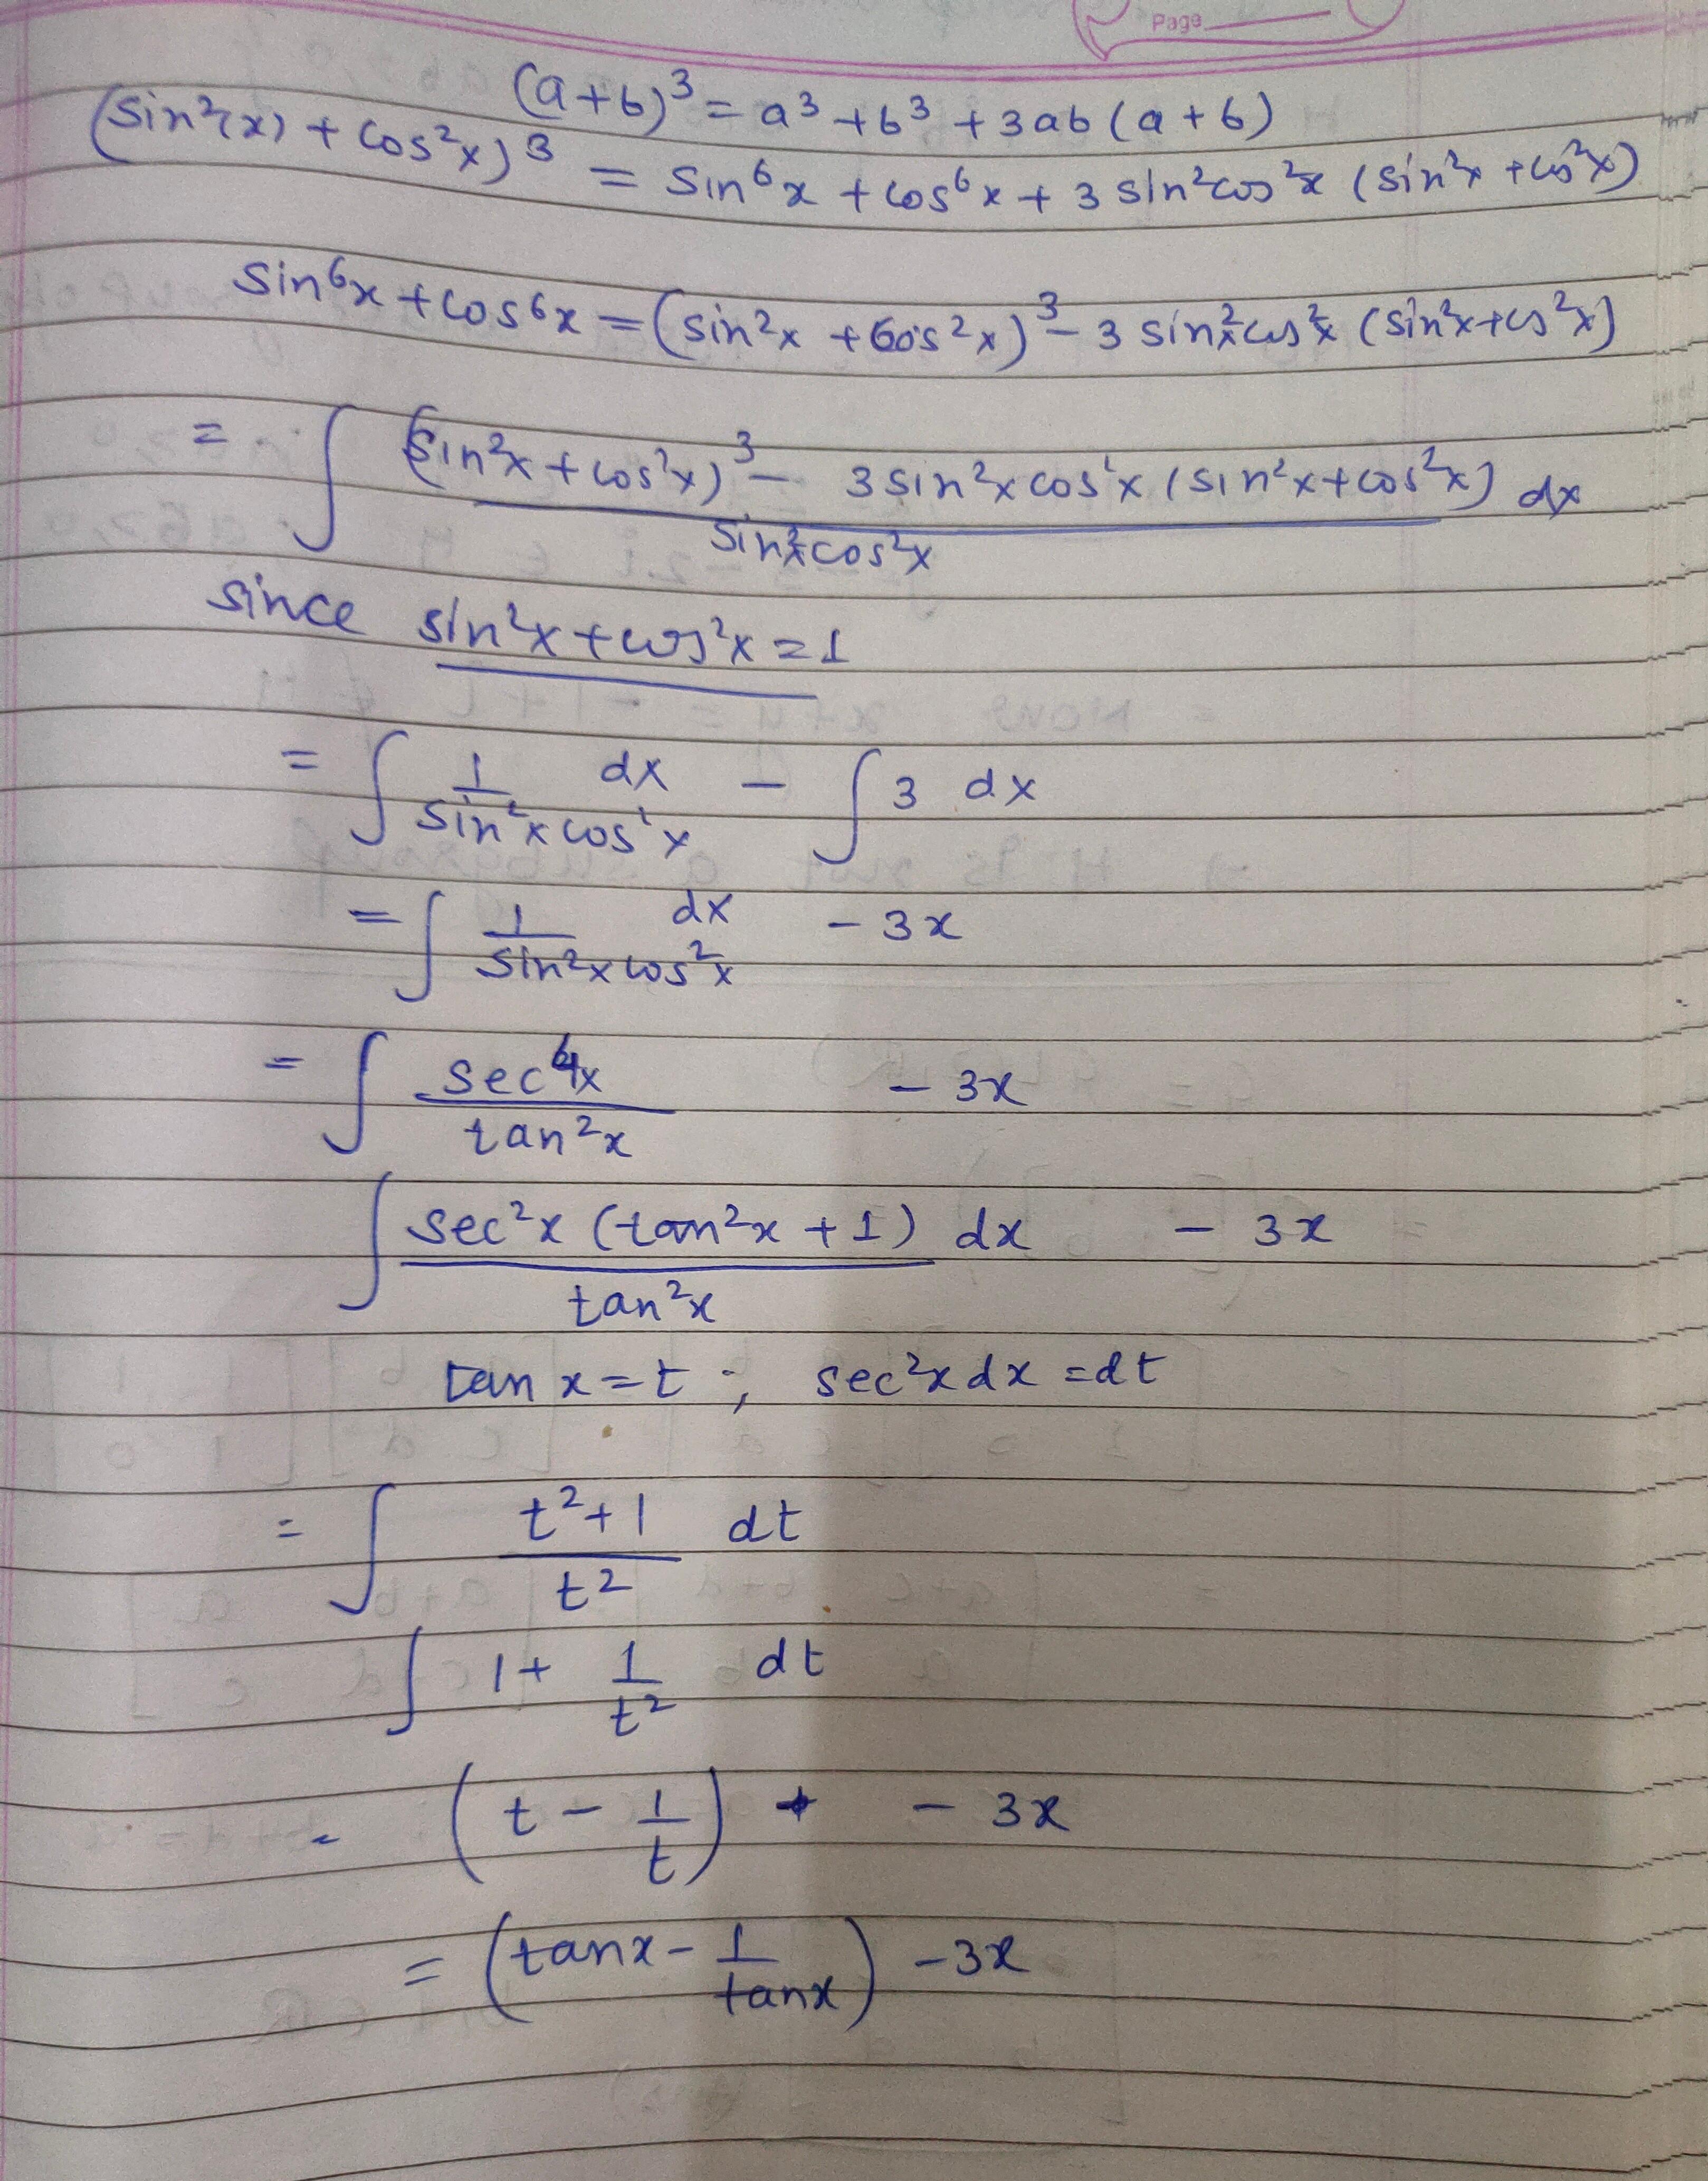 Page
(a+b)³ = a³ + b³ + 3ab(a+b)
(sin²(x) + cos²x)³ = sin⁶x + cos⁶x + 3 sin²cos²x (sin²x + cos²x)
sin⁶x + cos⁶x = (sin²x + cos²x)³ - 3 sin²x cos²x (sin²x + cos²x)
= ∫ (sin²x + cos²x)³ - 3 sin²x cos²x (sin²x + cos²x) dx
sin²x cos²x
since sin²x + cos²x = 1
= ∫ 1 dx - ∫ 3 dx
sin²x cos²x
= ∫ 1 dx - 3x
sin²x cos²x
= ∫ sec⁴x - 3x
tan²x
∫ sec²x (tan²x + 1) dx - 3x
tan²x
tan x = t ; sec²x dx = dt
= ∫ t² + 1 dt
t²
∫ 1 + 1 dt
t²
= (t - 1) - 3x
t
= (tanx - 1) - 3x
tanx